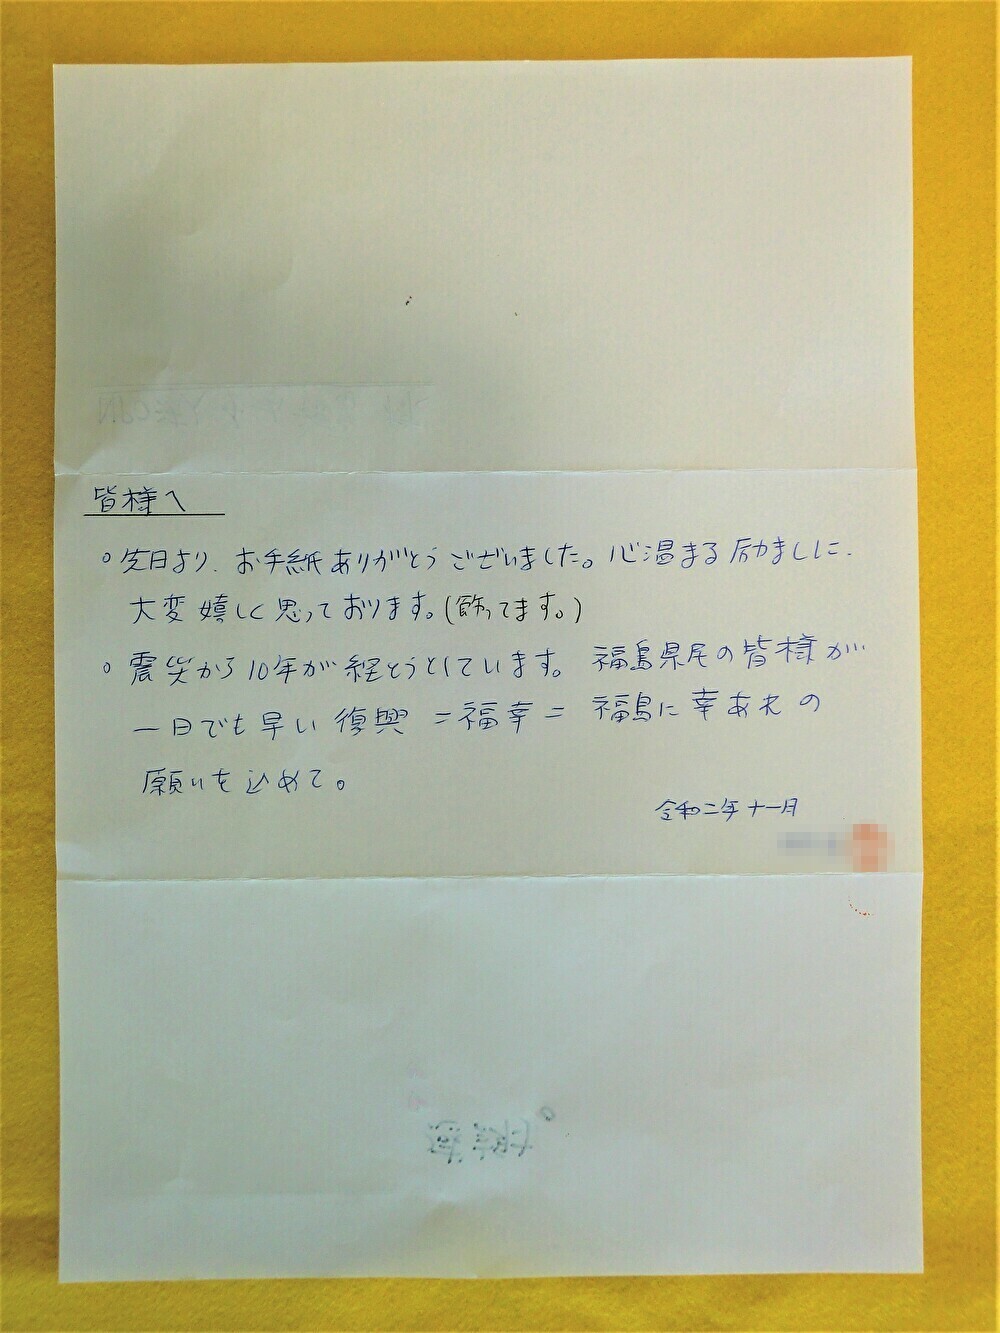 皆様へ
○ 先日より、お手紙ありがとうございました。心温まる励ましに、
大変嬉しく思っております。(飾ってます。)
○ 震災から10年が経とうとしています。福島県民の皆様が
一日でも早い復興 =福幸= 福島に幸あれの
願いを込めて。
令和二年十一月